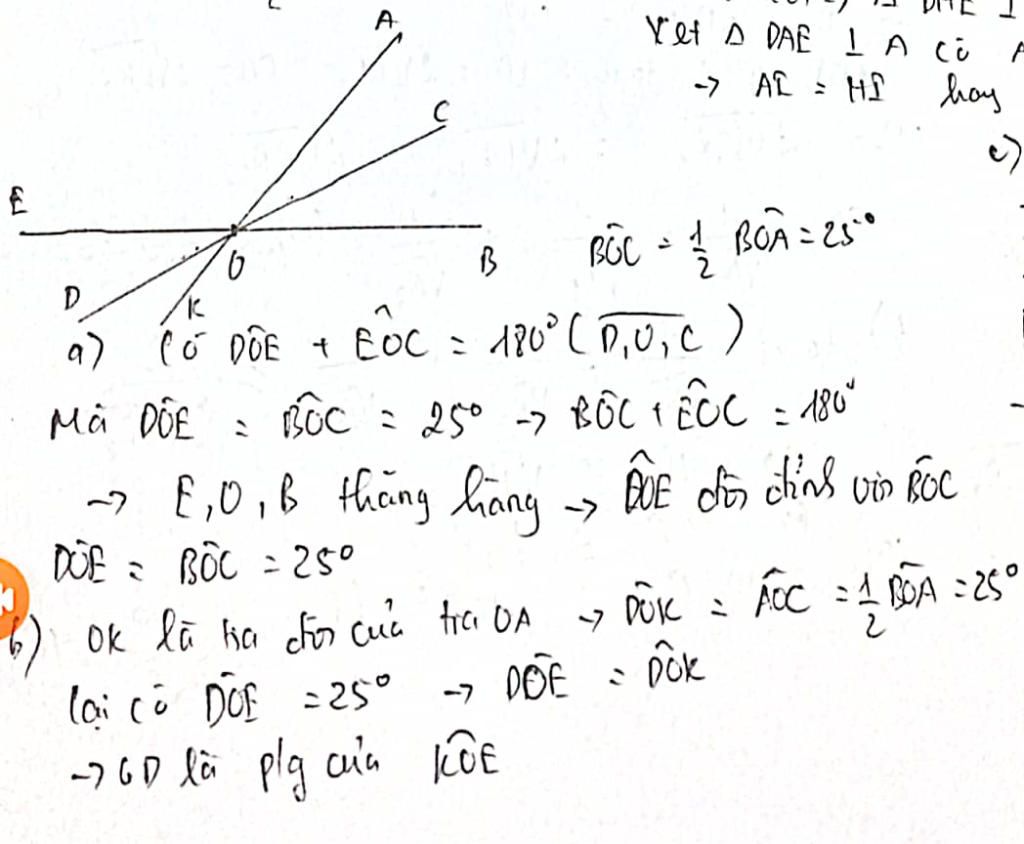 A
C
E
O
B
D
K
Xét Δ DAE ⊥ A có A
→ AI = HI hay
c)
BÔC = 1/2 BÔA = 25°
a) Có DÔE + EÔC = 180° (D,O,C)
Mà DÔE = BÔC = 25° → BÔC + EÔC = 180°
→ E,O,B thẳng hàng → DÔE đối đỉnh với BÔC
DÔE = BÔC = 25°
b) OK là tia đối của tia OA → DÔK = AÔC = 1/2 BÔA = 25°
lại có DÔE = 25° → DÔE = DÔK
→ OD là p/g của KÔE